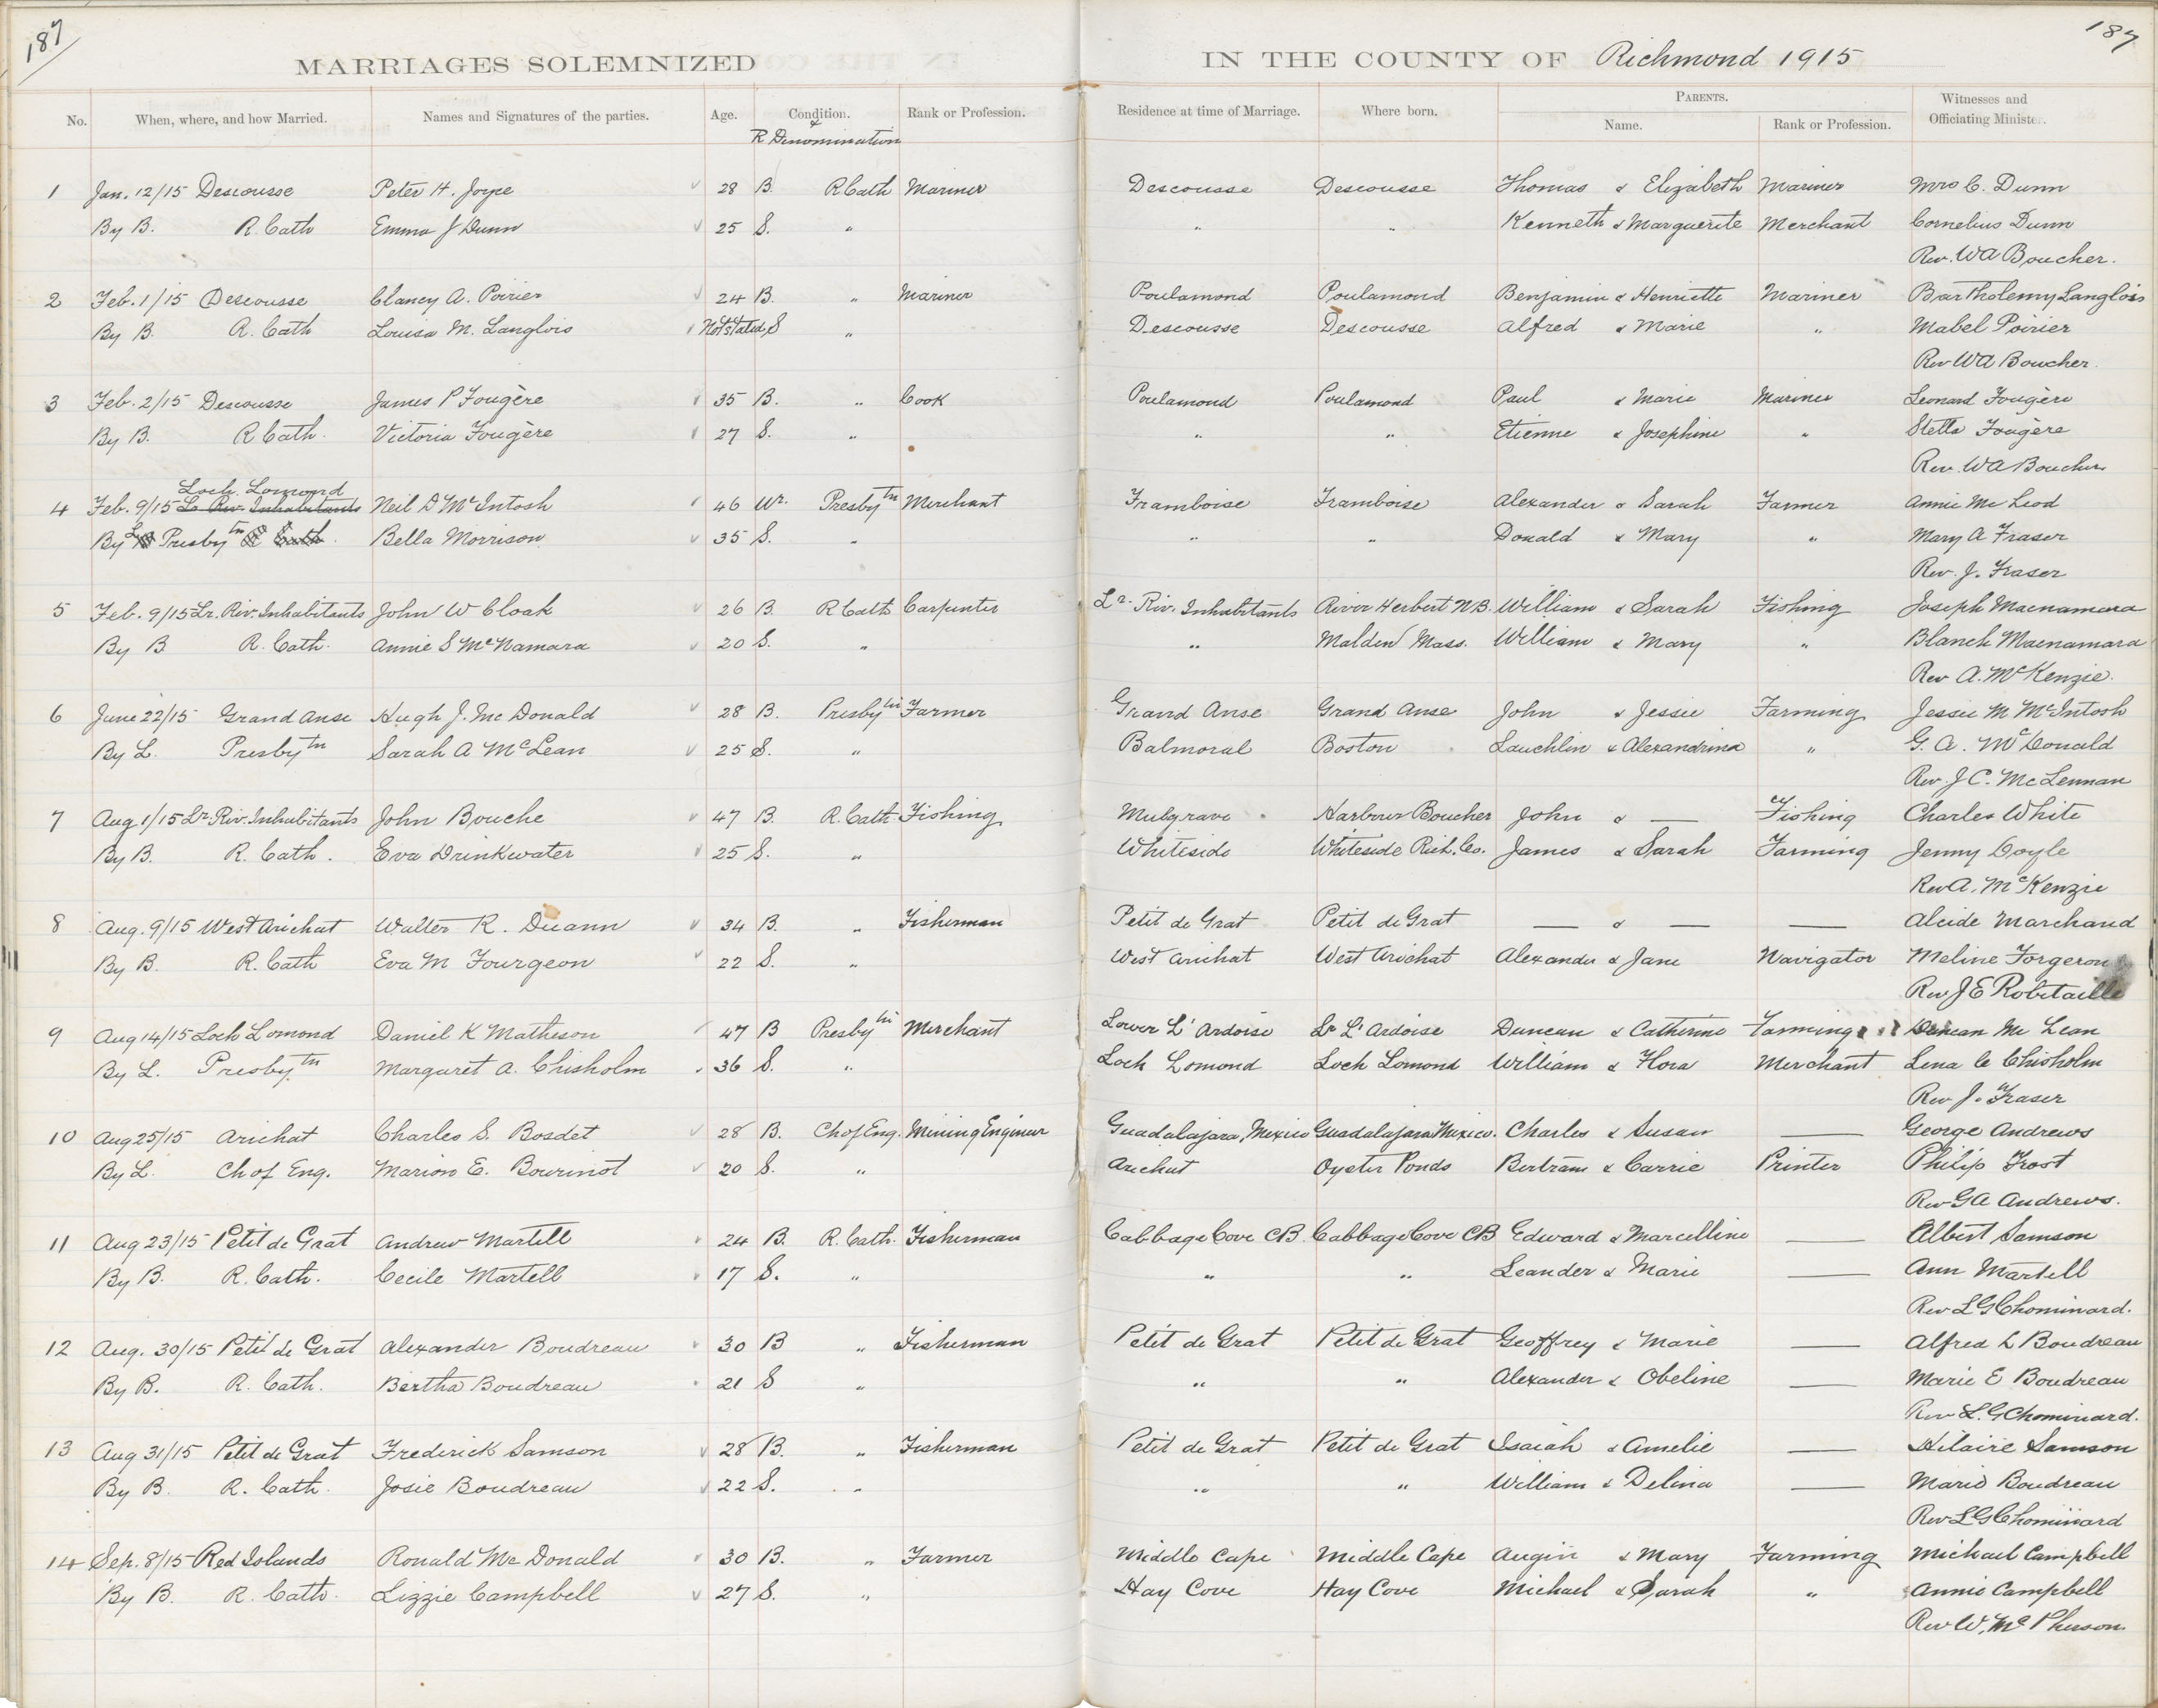 187
187
MARRIAGES SOLEMNIZED IN THE COUNTY OF Richmond 1915
No. When, where, and how Married. Names and Signatures of the parties. Age. Condition. Rank or Profession. Residence at time of Marriage. Where born. PARENTS. Witnesses and
& R Denomination Name. Rank or Profession. Officiating Minister.
1 Jan. 12/15 Descousse Peter H. Joyce 28 B. R Cath Mariner Descousse Descousse Thomas & Elizabeth Mariner Mrs C. Dunn
By B. R. Cath Emma J Dunn 25 S. " " " Kenneth & Marguerite Merchant Cornelius Dunn
Rev. WA Boucher.
2 Feb. 1/15 Descousse Clancy A. Poirier 24 B. " Mariner Poulamond Poulamond Benjamin & Henriette Mariner Bartholemy Langlois
By B. R. Cath Louisa M. Langlois Not stated S " Descousse Descousse Alfred & Marie " Mabel Poirier
Rev WA Boucher.
3 Feb. 2/15 Descousse James P Fougère 35 B. " Cook Poulamond Poulamond Paul & Marie Mariner Leonard Fougère
By B. R Cath. Victoria Fougère 27 S. " " " Etienne & Josephine " Stella Fougère
Rev. WA Boucher
Loch Lomond
4 Feb. 9/15 Lr Riv. Inhabitants Neil D McIntosh 46 Wr. Presbytn Merchant Framboise Framboise Alexander & Sarah Farmer Annie Mc Leod
By L Presbytn R Cath. Bella Morrison 35 S. " " " Donald & Mary " Mary A Fraser
Rev. J. Fraser
5 Feb. 9/15 Lr. Riv. Inhabitants John W Cloak 26 B. R Cath Carpenter Lr. Riv. Inhabitants River Herbert N.B. William & Sarah Fishing Joseph Macnamara
By B R. Cath. Annie S McNamara 20 S. " " Malden Mass. William & Mary " Blanch Macnamara
Rev A. McKenzie.
6 June 22/15 Grand Anse Hugh J. Mc Donald 28 B. Presbytn Farmer Grand Anse Grand Anse John & Jessie Farming Jessie M McIntosh
By L. Presbytn Sarah A McLean 25 S. " Balmoral Boston Lauchlin & Alexandrina " G. A. McDonald
Rev. J C. Mc Lennan
7 Aug 1/15 Lr Riv. Inhabitants John Bouche 47 B. R. Cath Fishing Mulgrave Harbour Boucher John & — Fishing Charles White
By B. R. Cath. Eva Drinkwater 25 S. " Whiteside Whiteside Rich. Co. James & Sarah Farming Jenny Doyle
Rev A. McKenzie
8 Aug. 9/15 West Arichat Walter R. Duann 34 B. " Fisherman Petit de Grat Petit de Grat — & — — Alcide Marchand
By B. R. Cath Eva M Fourgeon 22 S. " West Arichat West Arichat Alexander & Jane Navigator Meline Forgeron
Rev J E Robitaille
9 Aug 14/15 Loch Lomond Daniel K Matheson 47 B Presbytn Merchant Lower L'Ardoise Lr L'Ardoise Duncan & Catherine Farming Duncan Mc Lean
By L. Presbytn Margaret A. Chisholm 36 S. " Loch Lomond Loch Lomond William & Flora Merchant Lena C Chisholm
Rev J. Fraser
10 Aug 25/15 Arichat Charles S. Bosdet 28 B. Ch of Eng. Mining Engineer Guadalajara, Mexico Guadalajara Mexico. Charles & Susan — George Andrews
By L. Ch of Eng. Marion E. Bourinot 20 S. " Arichat Oyster Ponds Bertram & Carrie Printer Philip Frost
Rev GA Andrews.
11 Aug 23/15 Petit de Grat Andrew Martell 24 B. R. Cath. Fisherman Cabbage Cove CB. Cabbage Cove CB Edward & Marcelline — Albert Samson
By B. R. Cath. Cecile Martell 17 S. " " " Leander & Marie — Ann Martell
Rev L G Chominard.
12 Aug. 30/15 Petit de Grat Alexander Boudreau 30 B " Fisherman Petit de Grat Petit de Grat Geoffrey & Marie — Alfred L Boudreau
By B. R. Cath. Bertha Boudreau 21 S " " " Alexander & Obeline — Marie E Boudreau
Rev L. G Chominard.
13 Aug 31/15 Petit de Grat Frederick Samson 28 B. " Fisherman Petit de Grat Petit de Grat Isaiah & Amelie — Hilaire Samson
By B. R. Cath. Josie Boudreau 22 S. " " " William & Delina — Marie Boudreau
Rev L G Chominard
14 Sep. 8/15 Red Islands Ronald Mc Donald 30 B. " Farmer Middle Cape Middle Cape Augin & Mary Farming Michael Campbell
By B. R. Cath. Lizzie Campbell 27 S. " Hay Cove Hay Cove Michael & Sarah " Annie Campbell
Rev W. McPherson